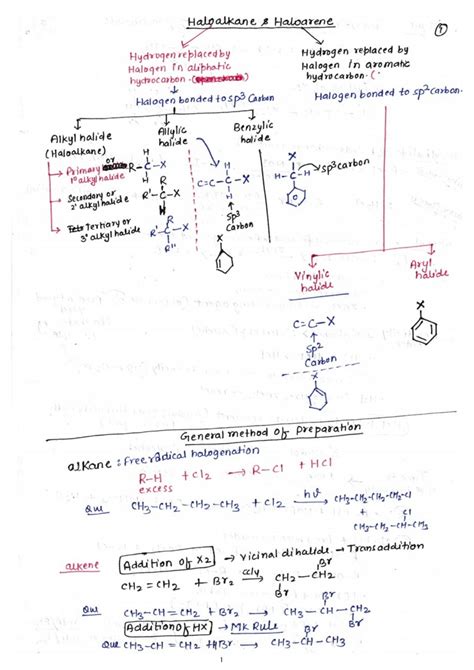 Haloalkane & Haloarene
1
Hydrogen replaced by
Halogen in aliphatic
hydrocarbon. (
Halogen bonded to sp3 Carbon
Hydrogen replaced by
Halogen in aromatic
hydrocarbon. (
Halogen bonded to sp2 carbon
Alkyl halide
(Haloalkane)
Allylic
halide
Benzylic
halide
Primary or
1° alkyl halide
H
R-C-X
H
Secondary or
2° alkyl halide
R
R'-C-X
H
Tertiary or
3° alkyl halide
R'
R-C-X
R"
H
C=C-C-X
H
sp3
Carbon
X
X
H-C-H
sp3 carbon
Vinylic
halide
Aryl
halide
C=C-X
sp2
Carbon
X
X
General method of Preparation
alkane: Free radical halogenation
R-H + Cl2 → R-Cl + HCl
excess
Que CH3-CH2-CH2-CH3 + Cl2 hν→ CH3-CH2-CH2-CH2-Cl
+ Cl
CH3-CH2-CH-CH3
alkene Addition of X2 → Vicinal dihalide → Trans addition
Br
CH2=CH2 + Br2 CCl4→ CH2-CH2
Br
Br
Que CH3-CH=CH2 + Br2 → CH3-CH-CH2
Br
Addition of HX → MK Rule
Br
Que CH3-CH=CH2 + HBr → CH3-CH-CH3
1